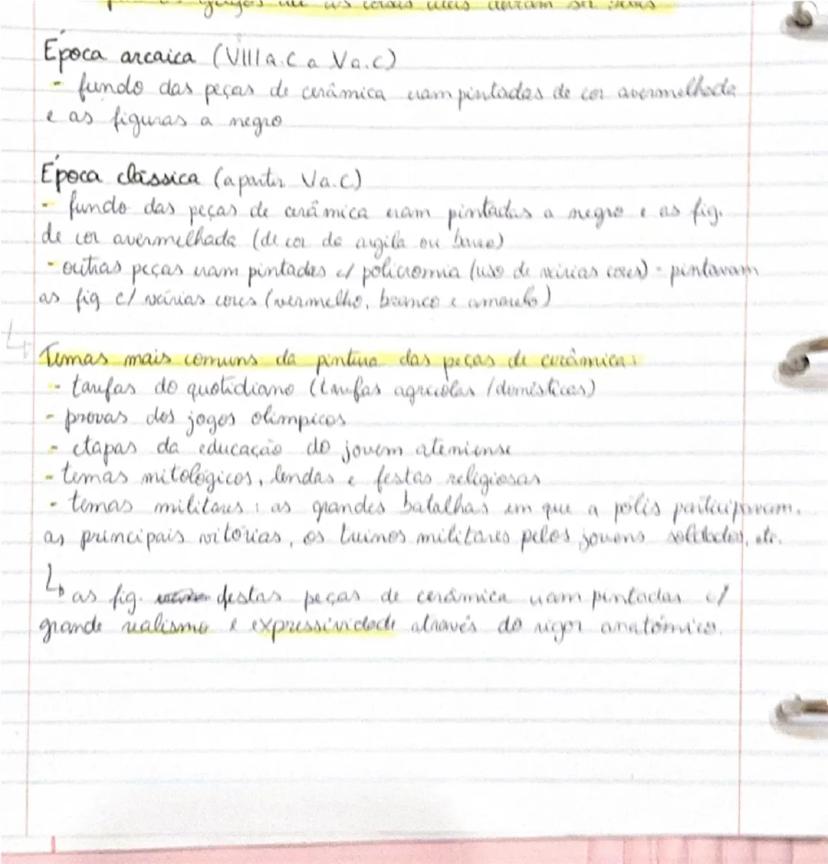 Época arcaica (VIII a.C a V a.C)
- fundo das peças de cerâmica eram pintadas de cor avermelhada
e as figuras a negro
Época clássica (a partir V a.C)
- fundo das peças de cerâmica eram pintadas a negro e as fig.
de cor avermelhada (de cor da argila ou barro)
- outras peças eram pintadas c/ policromia (uso de várias cores) - pintavam
as fig c/ várias cores (vermelho, branco e amarelo)
Temas mais comuns da pintura das peças de cerâmica:
- tarefas do quotidiano (tarefas agrícolas / domésticas)
- provas dos jogos olímpicos
- etapas da educação do jovem ateniense
- temas mitológicos, lendas e festas religiosas
- temas militares: as grandes batalhas em que a pólis participavam,
as principais vitórias, os treinos militares pelos jovens soldados, etc.
↳ as fig. destas peças de cerâmica eram pintadas c/
grande realismo e expressividade através do rigor anatómico.